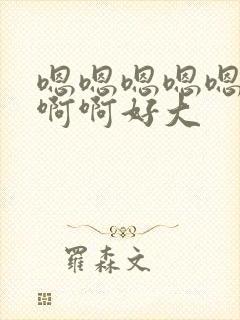 嗯嗯嗯嗯嗯
啊啊好大
羅森文